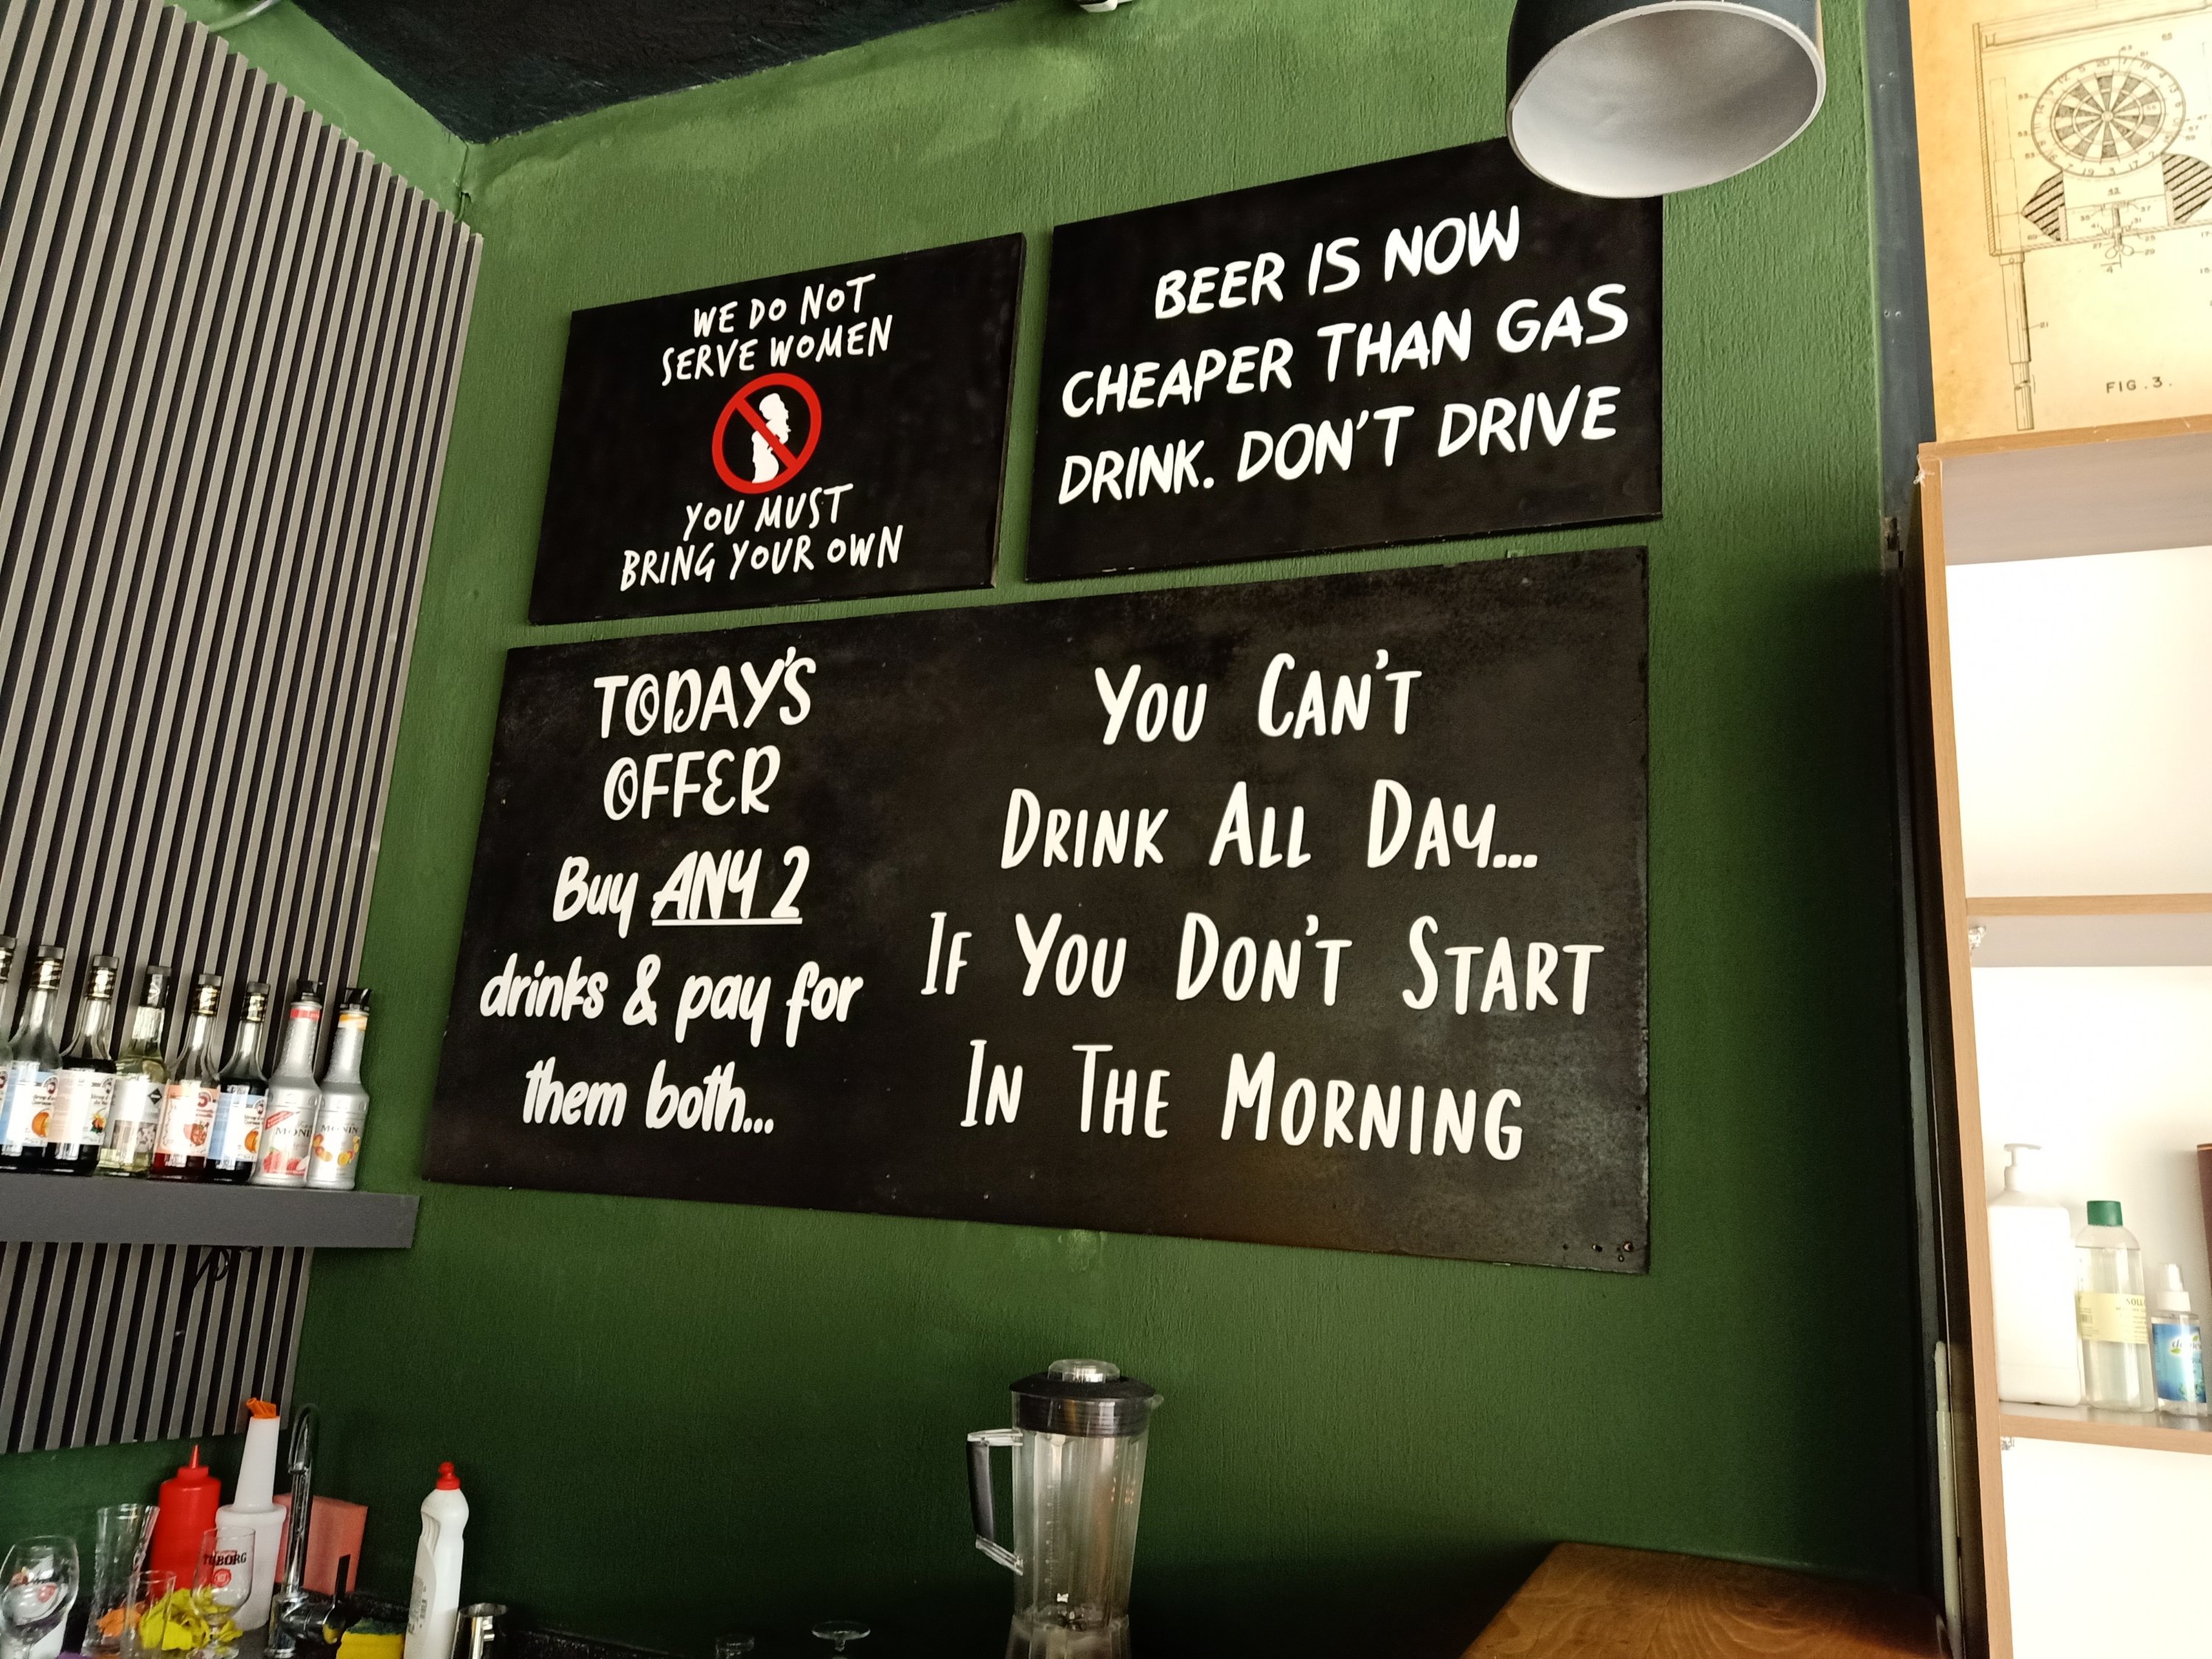 WE DO NOT
SERVE WOMEN
YOU MUST
BRING YOUR OWN
BEER IS NOW
CHEAPER THAN GAS
DRINK. DON'T DRIVE
TODAY'S
OFFER
Buy ANY 2
drinks & pay for
them both...
YOU CAN'T
DRINK ALL DAY...
IF YOU DON'T START
IN THE MORNING
FIG.3.
MONIN
TUBORG